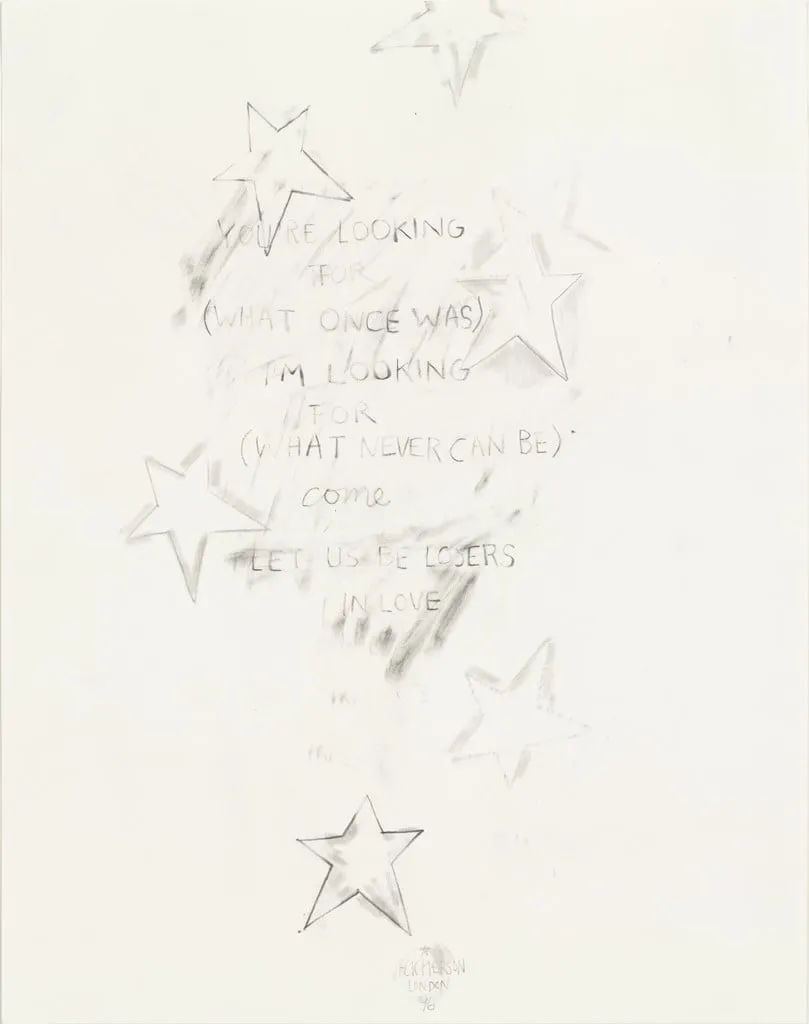 YOU'RE LOOKING
FOR
(WHAT ONCE WAS)
I'M LOOKING
FOR
(WHAT NEVER CAN BE)
come
LET US BE LOSERS
IN LOVE
JACK PIERSON
LONDON
96